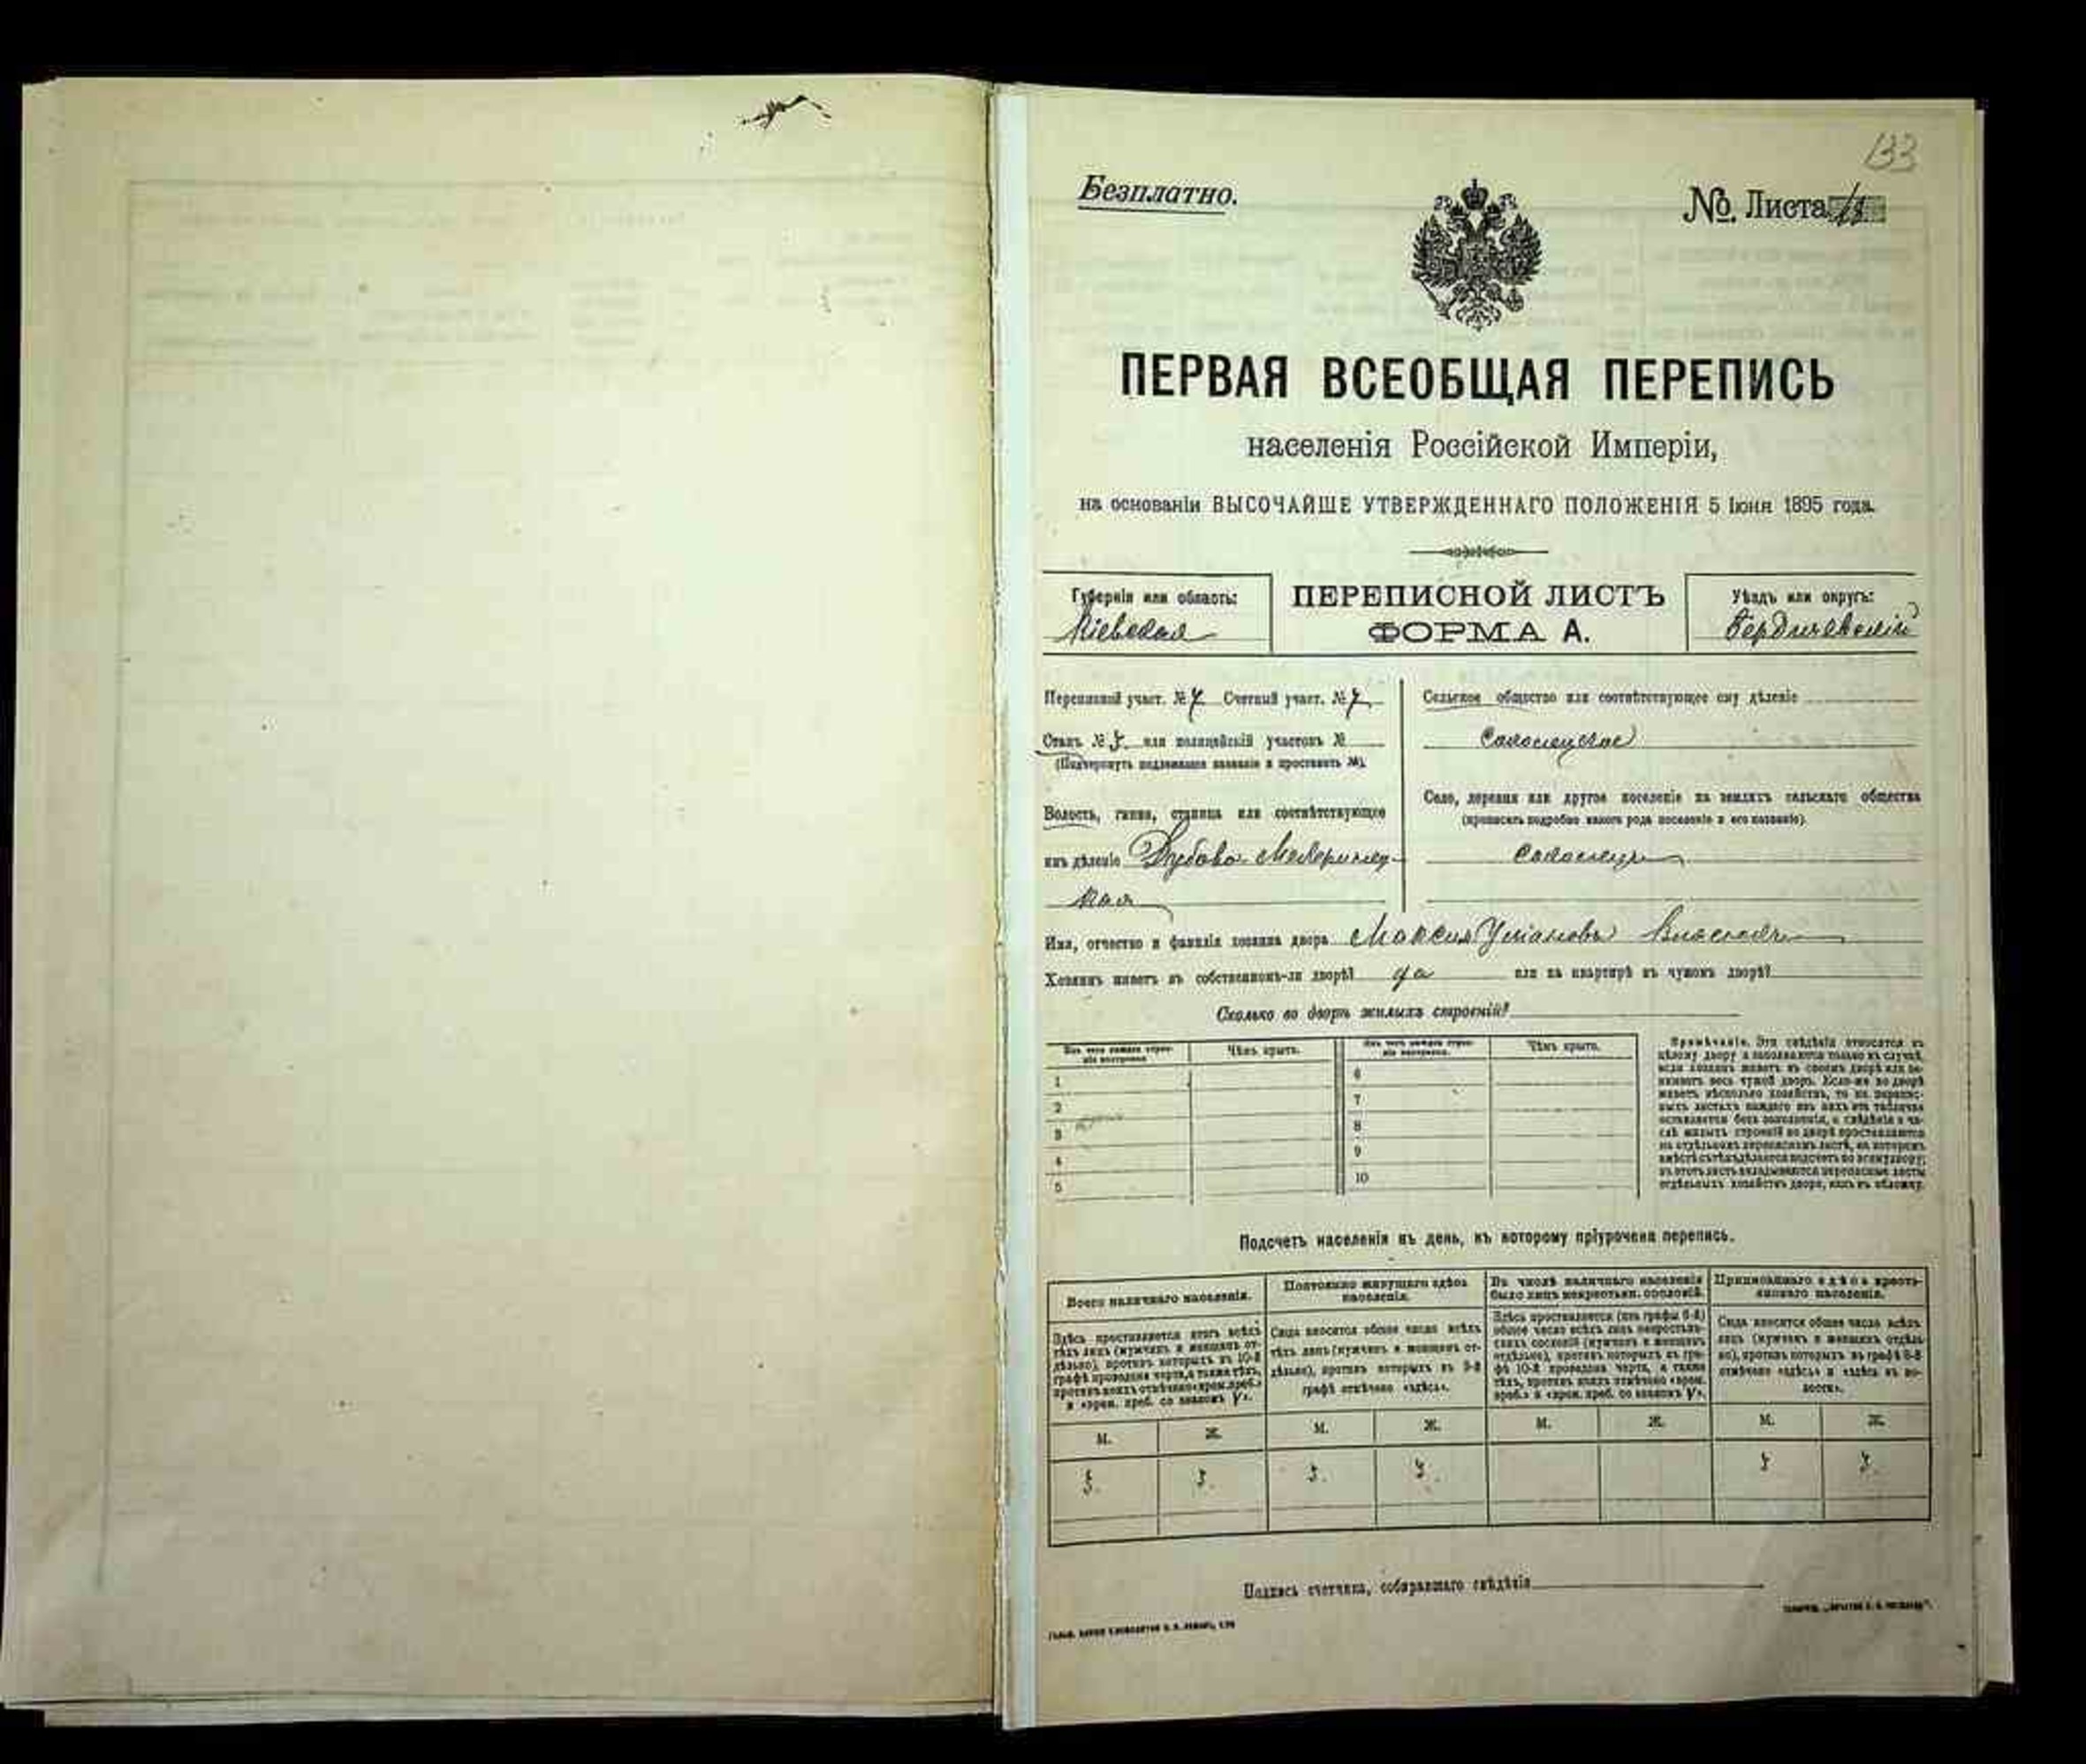 133
Безплатно.
№. Листа
ПЕРВАЯ ВСЕОБЩАЯ ПЕРЕПИСЬ
населенія Россійской Имперіи,
на основаніи ВЫСОЧАЙШЕ УТВЕРЖДЕННАГО ПОЛОЖЕНІЯ 5 Іюня 1895 года.
Губернія или область:
Кіевская
ПЕРЕПИСНОЙ ЛИСТЪ
ФОРМА А.
Уѣздъ или округъ:
Бердичевскій
Переписной участ. № Счетный участ. №
Станъ № или полицейскій участокъ №
(Подчеркнуть подлежащее названіе и проставить №).
Волость, гмина, станица или соотвѣтствующее
имъ дѣленіе Дубово-Мехеринец-
кая
Сельское общество или соотвѣтствующее ему дѣленіе
Село, деревня или другое поселеніе на земляхъ сельскаго общества
(прописать подробно какого рода поселеніе и его названіе).
Имя, отчество и фамилія хозяина двора Максим
Хозяинъ живетъ въ собственномъ-ли дворѣ? да или на квартирѣ въ чужомъ дворѣ?
Сколько во дворѣ жилыхъ строеній?
Изъ чего каждое строе-
ніе построено. Чѣмъ крыто. Изъ чего каждое строе-
ніе построено. Чѣмъ крыто.
1 6
2 7
3 8
4 9
5 10
Примѣчаніе. Эти свѣдѣнія относятся къ
цѣлому двору и заполняются только въ случаѣ,
если хозяинъ живетъ въ своемъ дворѣ или за-
нимаетъ весь чужой дворъ. Если-же во дворѣ
живетъ нѣсколько хозяйствъ, то на перепис-
ныхъ листахъ каждаго изъ нихъ эта табличка
оставляется безъ заполненія, а свѣдѣнія о чи-
слѣ жилыхъ строеній во дворѣ проставляются
на отдѣльномъ переписномъ листѣ, на которомъ
вмѣстѣ съ тѣмъ дѣлается подсчетъ по всему двору;
въ этотъ листъ вкладываются переписные листы
отдѣльныхъ хозяйствъ двора, какъ въ обложку.
Подсчетъ населенія въ день, къ которому пріурочена перепись.
Всего наличнаго населенія.
Здѣсь проставляется итогъ всѣхъ
тѣхъ лицъ (мужчинъ и женщинъ от-
дѣльно), противъ которыхъ въ 10-й
графѣ проведена черта, а также тѣхъ,
противъ коихъ отмѣчено «врем. преб.»
и «врем. преб. со знакомъ V».
Постоянно живущаго здѣсь
населенія.
Сюда вносится общее число всѣхъ
тѣхъ лицъ (мужчинъ и женщинъ от-
дѣльно), противъ которыхъ въ 9-й
графѣ отмѣчено «здѣсь».
Въ числѣ наличнаго населенія
было лицъ некрестьян. сословій.
Здѣсь проставляется (изъ графы 6-й)
общее число всѣхъ лицъ некрестьян-
скихъ сословій (мужчинъ и женщинъ
отдѣльно), противъ которыхъ въ гра-
фѣ 10-й проведена черта, а также
тѣхъ, противъ коихъ отмѣчено «врем.
преб.» и «врем. преб. со знакомъ V».
Приписаннаго здѣсь кресть-
янскаго населенія.
Сюда вносится общее число всѣхъ
лицъ (мужчинъ и женщинъ отдѣль-
но), противъ которыхъ въ графѣ 8-й
отмѣчено «здѣсь» и «здѣсь въ во-
лости».
М. Ж. М. Ж. М. Ж. М. Ж.
Подпись счетчика, собиравшаго свѣдѣнія